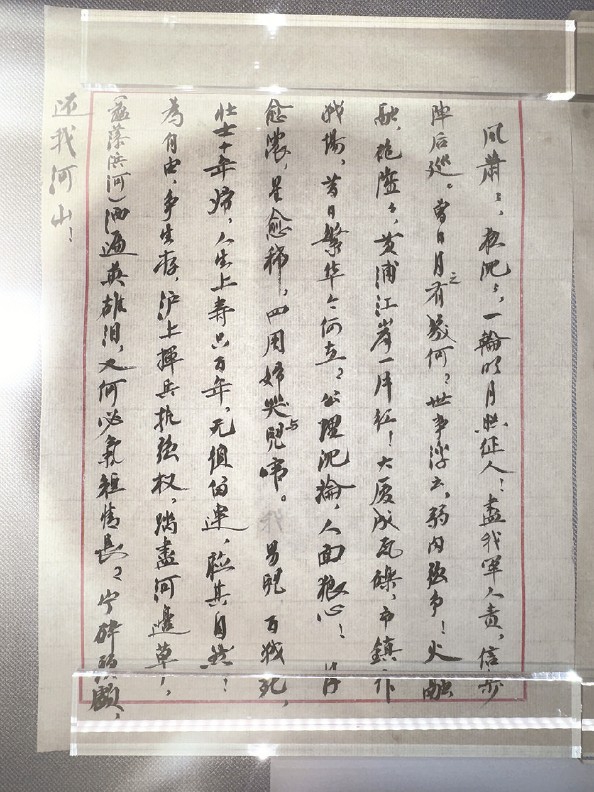 风萧々，夜沉々，一轮明月照征人！尽我军人责，信步
阵后巡。曾日月之有几何？世事浮云，弱肉强争！火融
融，炮隆々，黄浦江岸一片红！大厦成瓦砾，市镇作
战场，昔日繁华今何在？公理沉沦，人面狼心！月
愈浓，星愈稀，四周妇哭与儿啼。男儿，百战死，
壮士十年归，人生上寿只百年，无须留连，听其自然！
为自由，争生存，沪上挥兵抗强权，踏尽河边草，
(蕰藻浜河)洒遍英雄泪，又何必气短情长？宁碎头颅，
还我河山！